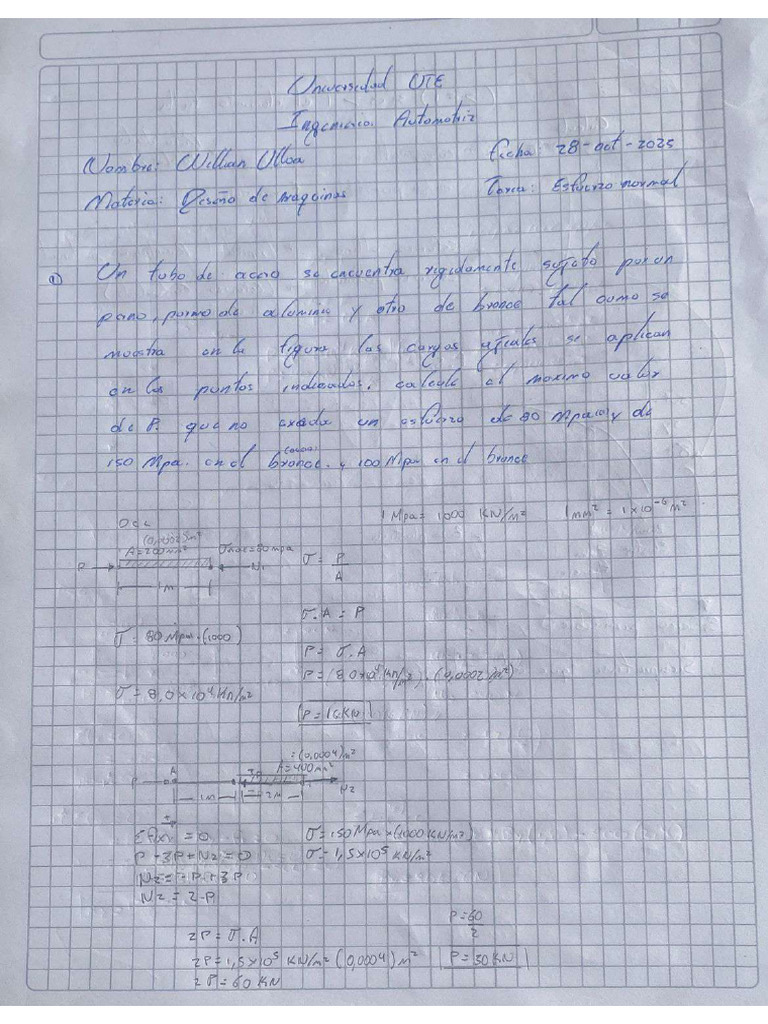 Universidad UTE
Ingenieria Automotriz
Nombre: Willian Ulloa
fecha: 28-oct-2025
Materia: Diseño de maquinas
Tarea: Esfuerzo normal
① Un tubo de acero se encuentra rigidamente sujeto por un
perno, de aluminio y otro de bronce tal como se
muestra en la figura las cargas axiales se aplican
en los puntos indicados. calcule el maximo valor
de P. que no exceda un esfuerzo de 80 Mpa y de
150 Mpa. en el bronce. y 100 Mpa en el bronce
1 Mpa = 1000 KN/m² 1mm² = 1x10⁻⁶ m²
DCL
(0,0002)m²
A=200mm² σmax=80mpa
P N1
1m
σ = P/A
σ.A = P
σ = 80 Mpa.(1000)
P = σ.A
P = (8,0x10⁴ KN/m²).(0,0002 m²)
σ = 8,0x10⁴ KN/m²
P = 16KN
=(0,0004)m²
A=400mm²
P A N2
1m 2m
Σfx = 0
σ=150Mpa x(1000KN/m²)
P-3P+N2=0
σ=1,5x10⁵ KN/m²
N2=-P+3P
N2=2P
2P=σ.A
P=60/2
2P=1,5x10⁵ KN/m² (0,0004)m²
P=30KN
2P=60 KN